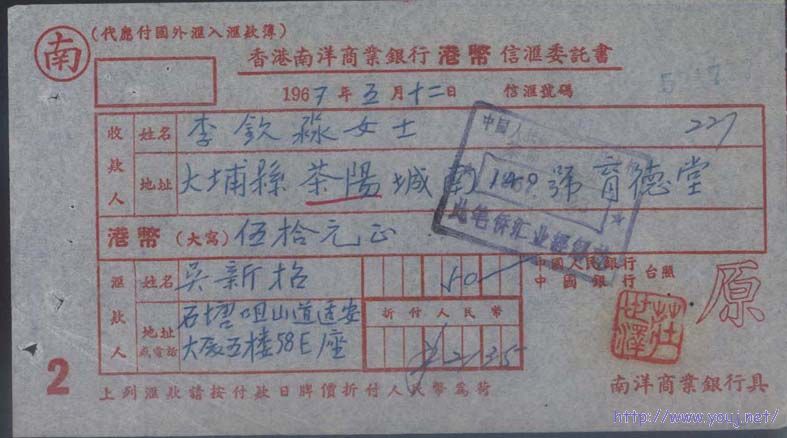 南 (代應付國外滙入滙款簿)
香港南洋商業銀行 港幣 信滙委託書
1967年五月十二日 信滙號碼
227
收款人 姓名 李欽淼女士
地址 大埔縣茶陽城南 號育德堂
中國人民
此笔侨汇业经
港幣 (大寫) 伍拾元正
滙款人 姓名 吳新招 50
中國人民銀行
中國銀行 台照
地址 或電話 石塘咀山道
大廈五楼58E座
折付人民幣
莊世澤
原
2
上列滙款請按付款日牌價折付人民幣為荷
南洋商業銀行具
http://www.youj.net/